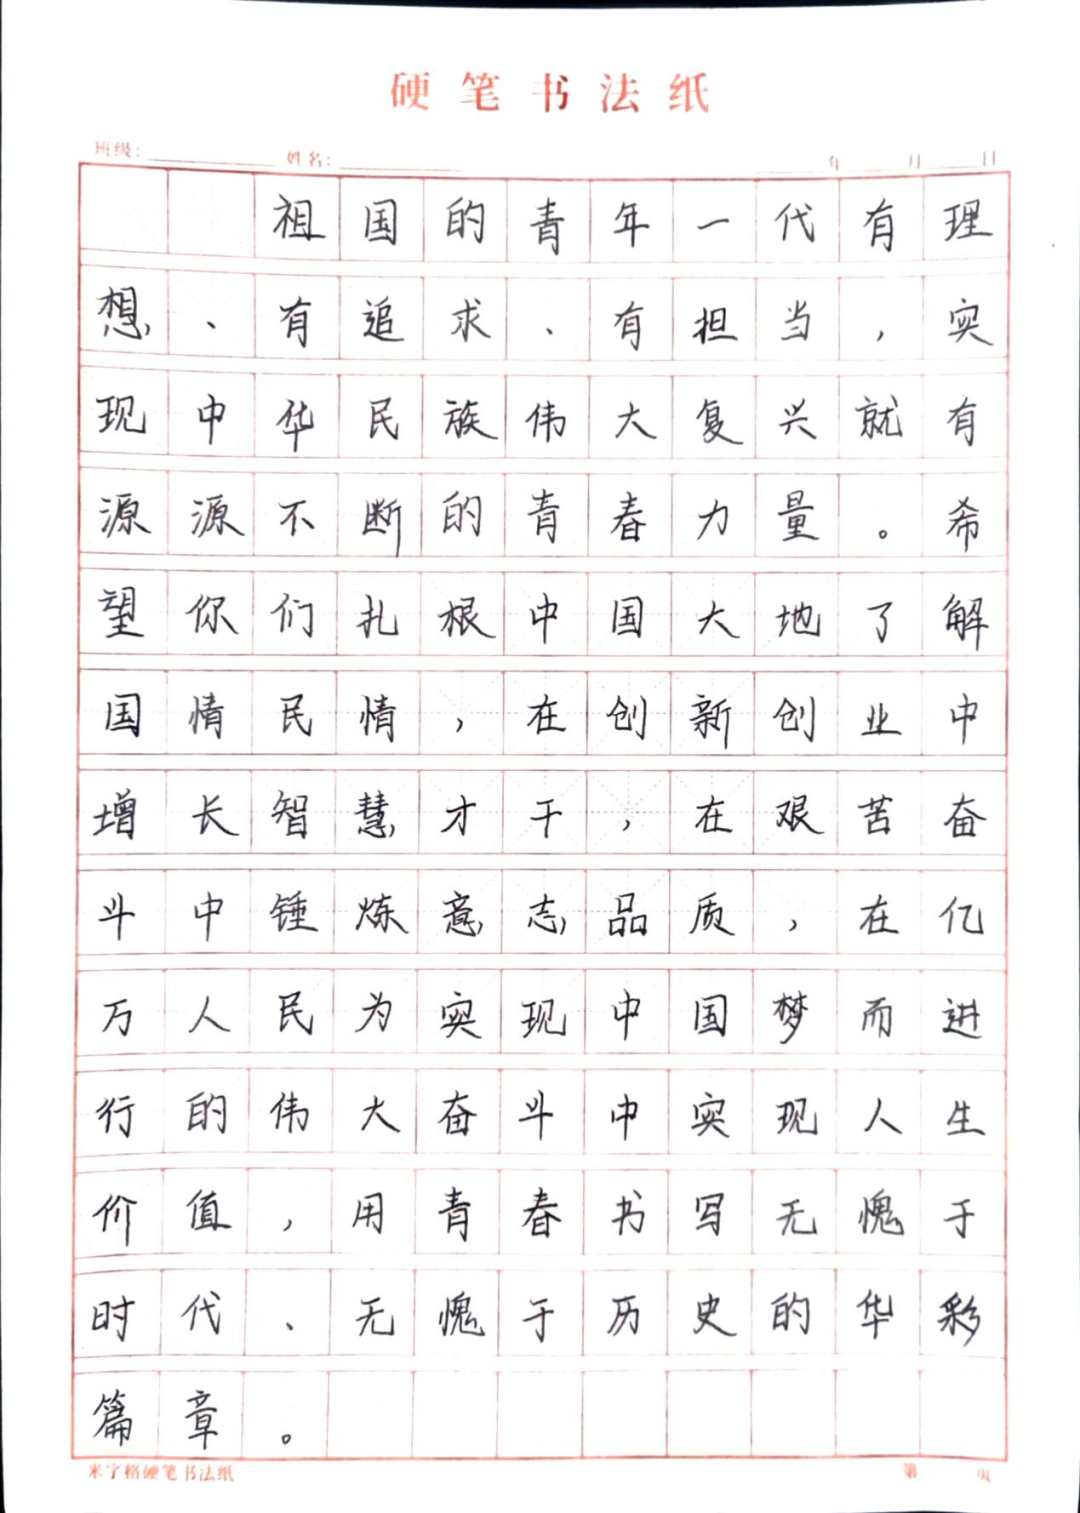 硬笔书法纸
班级： 姓名： 年 月 日
祖国的青年一代有理
想、有追求、有担当，实
现中华民族伟大复兴就有
源源不断的青春力量。希
望你们扎根中国大地了解
国情民情，在创新创业中
增长智慧才干，在艰苦奋
斗中锤炼意志品质，在亿
万人民为实现中国梦而进
行的伟大奋斗中实现人生
价值，用青春书写无愧于
时代、无愧于历史的华彩
篇章。
米字格硬笔书法纸 第 页